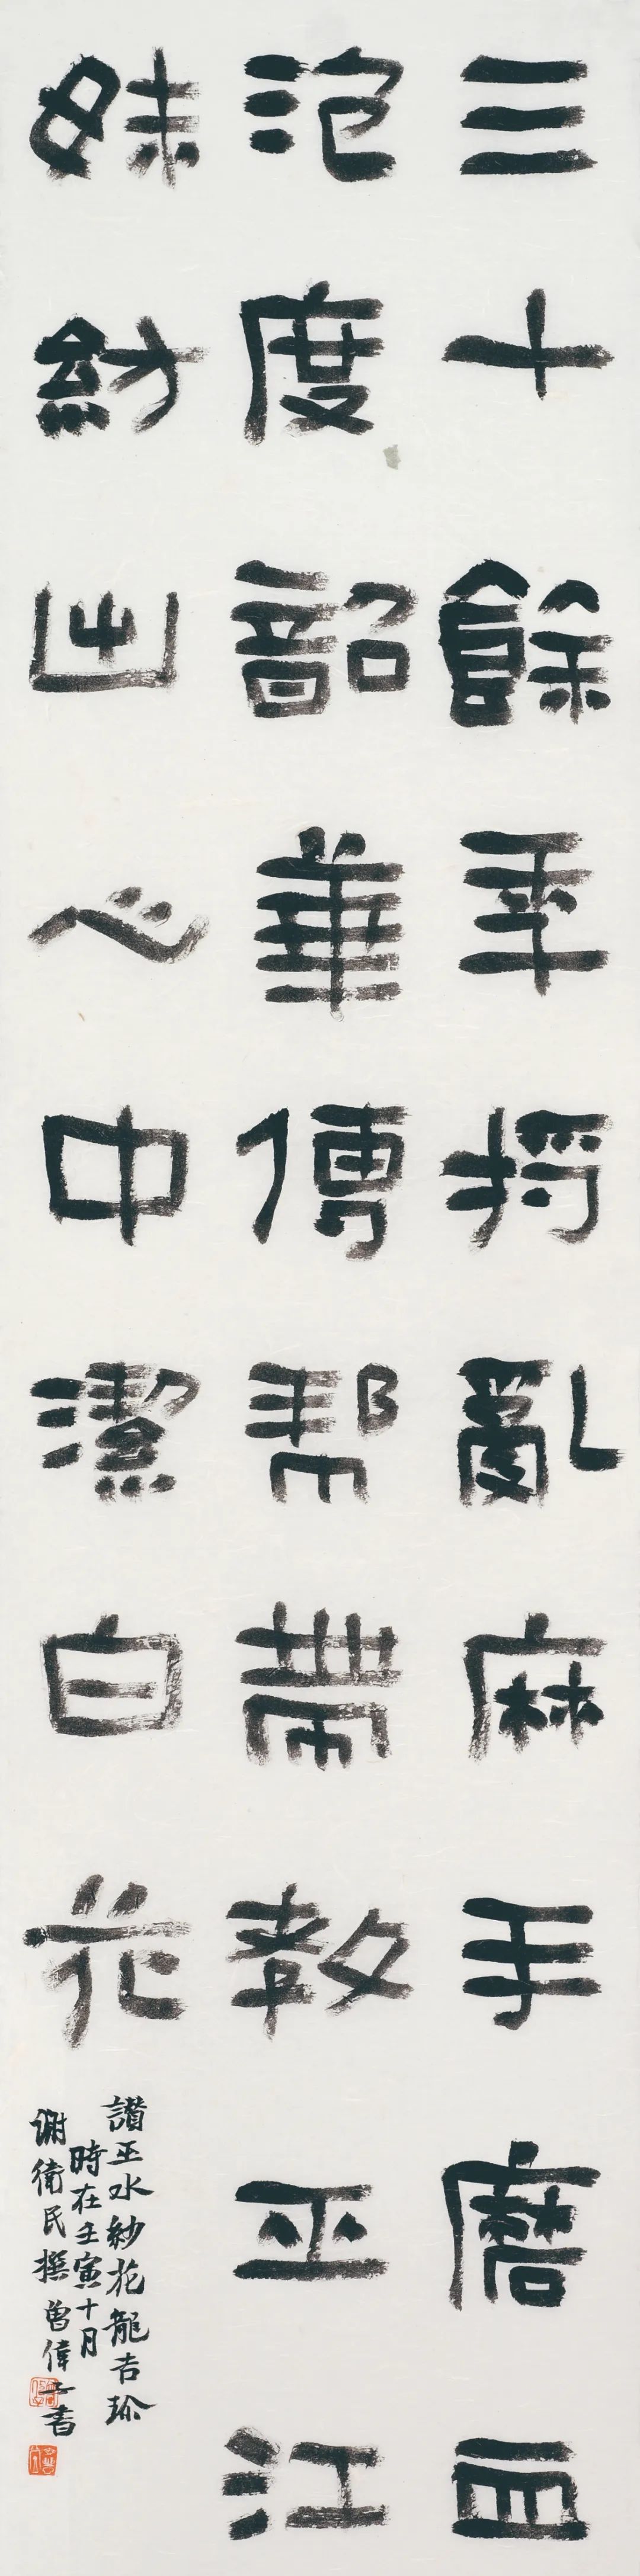 三十餘年將亂麻手磨血
泡度韶華傳幫帶教巫江
妹紡出心中潔白花
讚巫水紗花龍吉珍
時在壬寅十月
謝衛民撰曾偉子書